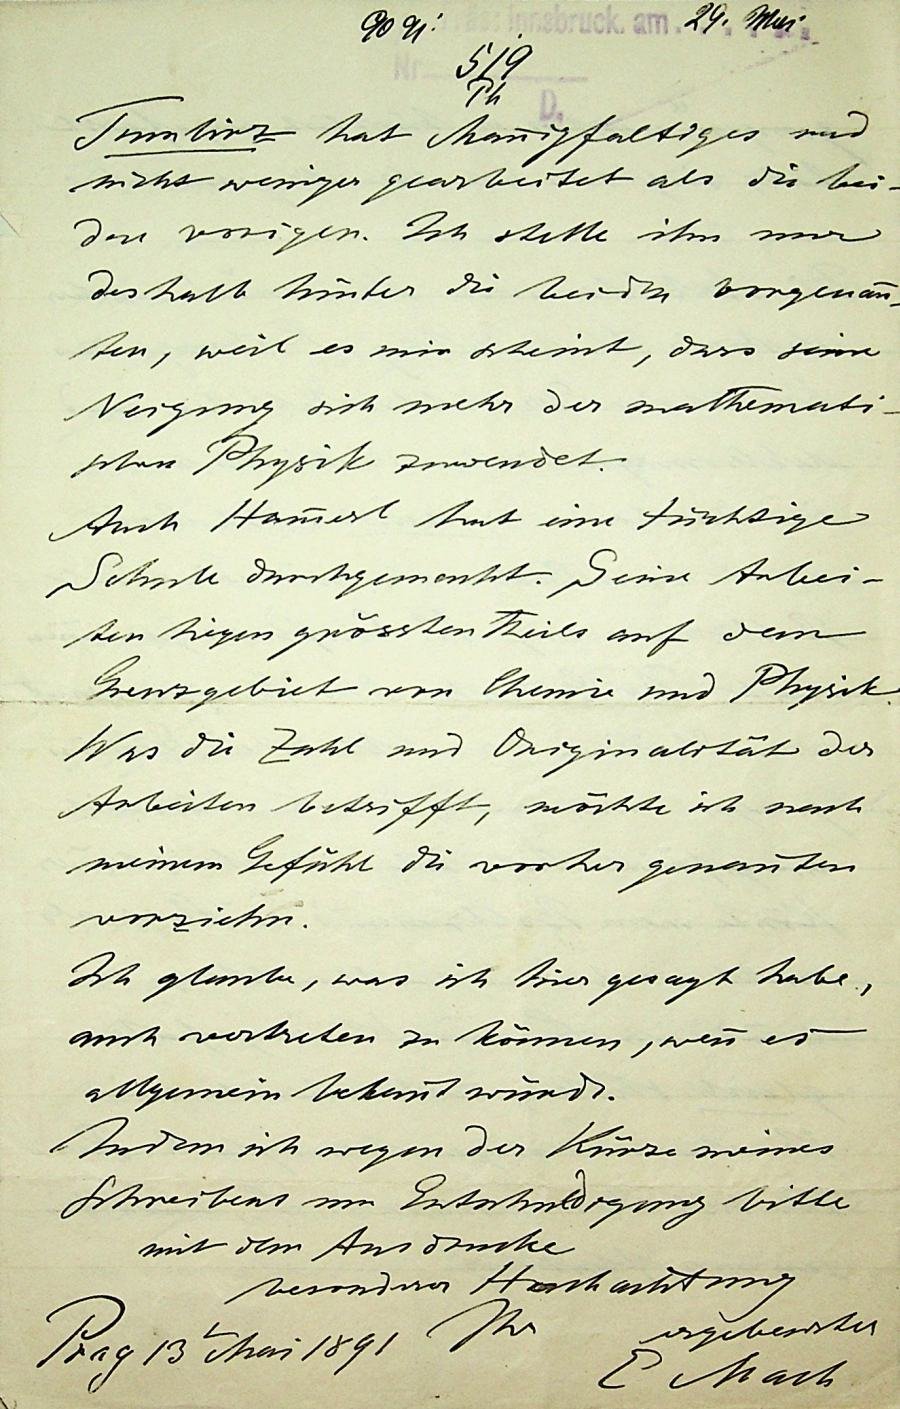 90 91. Innsbruck. am 29. Mai
Nr. 519
Ph
D.
Tumlirz hat Manigfaltiges und
nicht weniger gearbeitet als die bei-
den vorigen. Ich stelle ihn nur
deshalb hinter die beiden vorgenan̄-
ten, weil es mir scheint, dass seine
Neigung sich mehr der mathemati-
schen Physik zuwendet.
Auch Ham̄erl hat eine tüchtige
Schule durchgemacht. Seine Arbei-
ten liegen grösstenTheils auf dem
Grenzgebiet von Chemie und Physik.
Was die Zahl und Originalität der
Arbeiten betrifft, möchte ich nach
meinem Gefühl die vorher genan̄ten
vorziehn.
Ich glaube, was ich hier gesagt habe,
auch vertreten zu können, wen̄ es
allgemein bekan̄t würde.
Indem ich wegen der Kürze meines
Schreibens um Entschuldigung bitte
mit dem Ausdrucke
besonderer Hochachtung
Ihr ergebenster
Prag 13 Mai 1891
E Mach